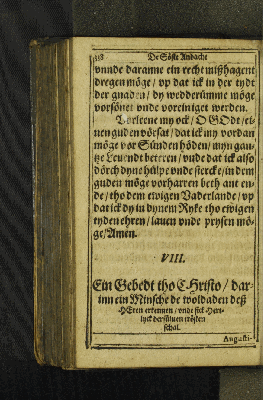 De Söste Andacht
vnnde daranne ein recht mißhagent
dregen möge / vp dat ick in der tydt
der gnaden / dy wedderümme möge
vorsönet vnde voreiniget werden.
Vorleene my ock / O GOdt / ei-
nen guden vörsat / dat ick my vordan
möge vor Sünden höden / myn gan-
tze Leuendt beteren / vnde dat ick also
dörch dyne hülpe vnde stercke / in dem
guden möge vorharren beth ant en-
de / tho dem ewigen Vaderlande / vp
dat ick dy in dynem Ryke tho ewigen
tyden ehren / lauen vnde prysen mö-
ge / Amen.
VIII.
Ein Gebedt tho Christo / dar-
inn ein Minsche de woldaden deß
HEren erkennen / vnde sick
schal.
Augusti-